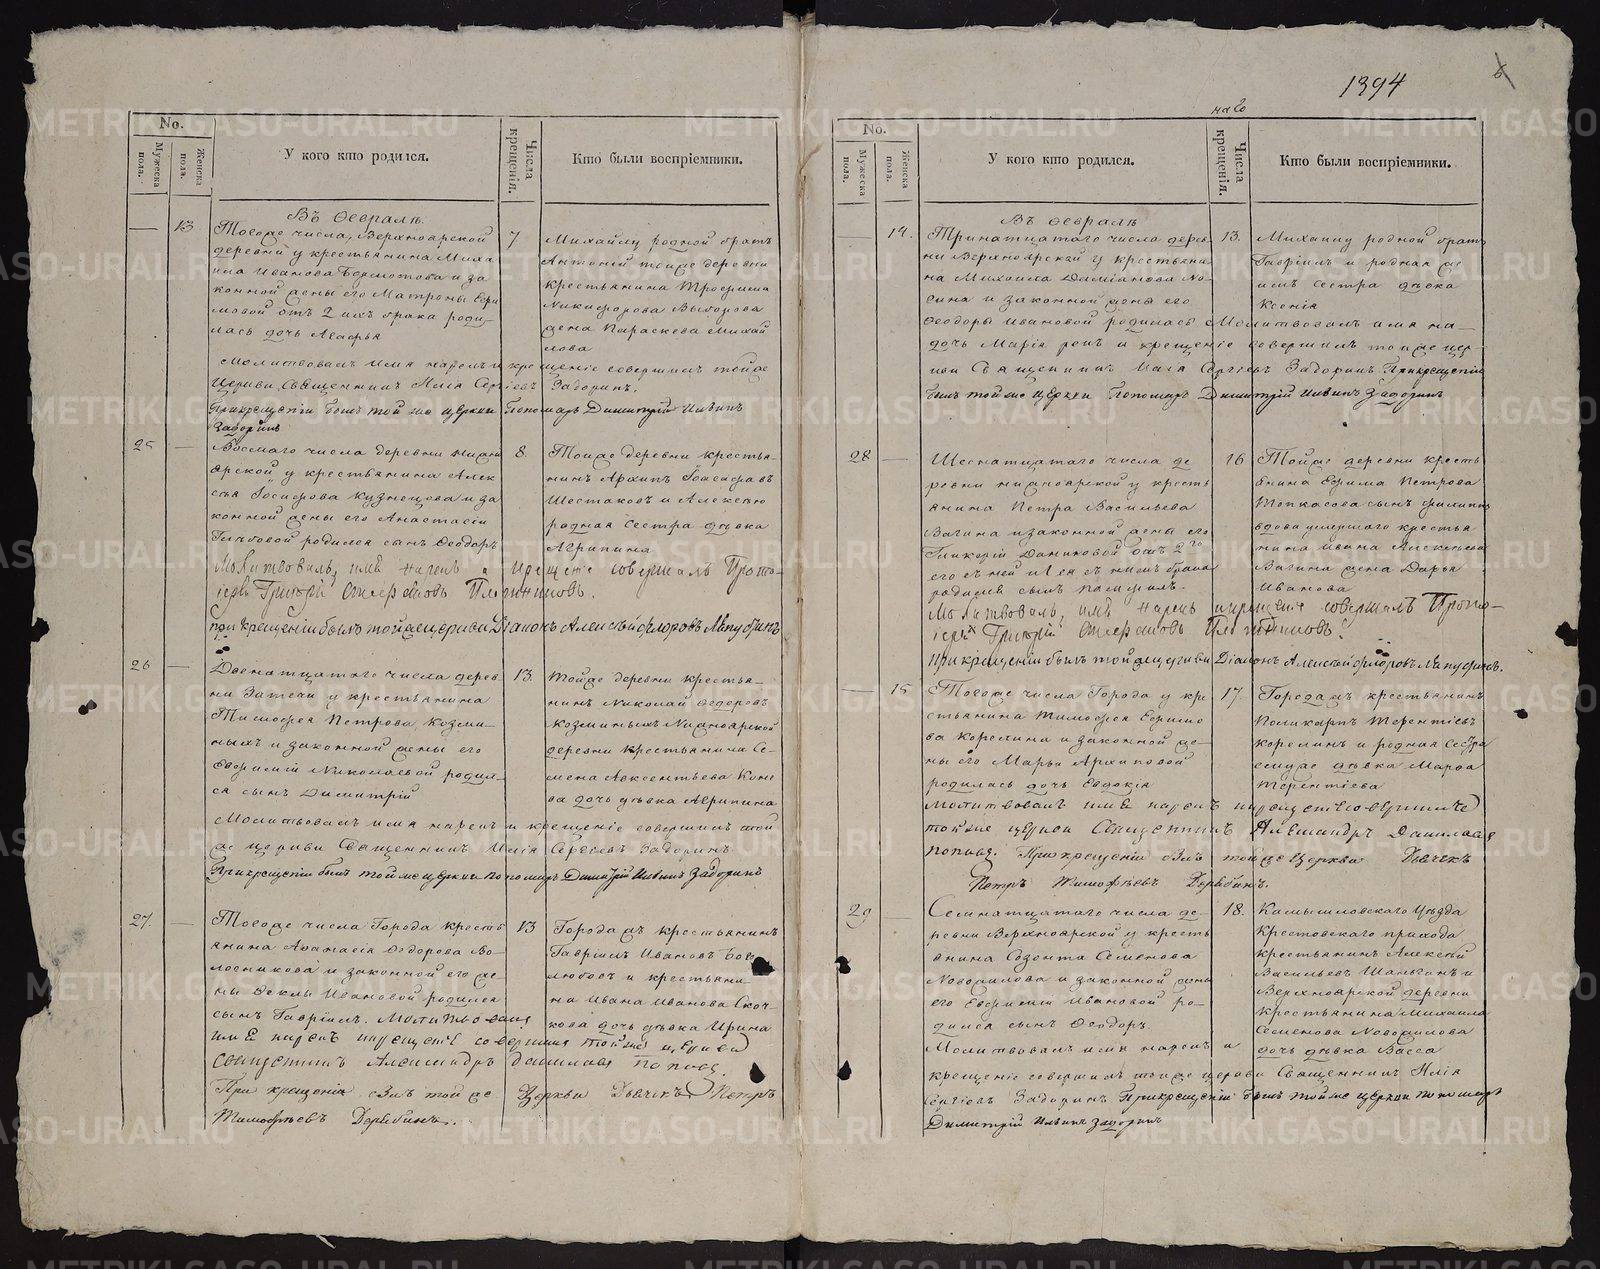 1394
6
на 20
No.
Мужеска пола.
Женска пола.
У кого кто родился.
Числа крещенія.
Кто были воспріемники.
Въ Февралѣ.
13
Тогоже числа, Верхноярской
деревни у крестьянина Миха
ила Иванова и за
конной жены его Матроны Ефи
мовой отъ 2 ихъ брака роди
лась дочь Агафья
7
Михаилу родной братъ
Антоній тойже деревни
крестьянина Трофима
Никифорова Выборова
жена Параскева Михай
лова
Молитвовалъ имя нарекъ и крещеніе совершилъ тойже
Церкви, Священникъ Илія Сергіевъ Задоринъ.
При крещеніи былъ тойже церкви Пономарь Димитрій Иліинъ
Задоринъ
25
Восмаго числа деревни Нижно
ярской у крестьянина Алек
сѣя Іосифова Кузнецова и за
конной жены его Анастасіи
Глѣбовой родился сынъ Ѳеодоръ
8
Тойже деревни крестья-
нинъ Архипъ Іоасафовъ
Шестаковъ и Алексѣю
родная сестра дѣвка
Агрипина
Молитвовалъ, имя нарекъ и крещеніе совершалъ Прото-
іерей Григорій Стефановъ Плотниковъ.
при крещеніи былъ тойже церкви Діаконъ Алексѣй Флоровъ Ляпустинъ
26
Двенатцатаго числа дерев
ни Затечи у крестьянина
Тимофея Петрова Козми-
ныхъ и законной жены его
Евфимій Николаевой родил-
ся сынъ Димитрій
13.
Тойже деревни крестья-
нинъ Николай Ѳедоровъ
Козминыхъ Нижноярской
деревни крестьянина Се-
мена Авксентьева Коне
ва дочь дѣвка Агрипина
Молитвовалъ имя нарекъ и крещеніе совершилъ той
же церкви Священникъ Илія Сергіевъ Задоринъ
При крещеніи былъ тойже церкви пономарь Димитрій Иліинъ Задоринъ
27.
Тогоже числа Города кресть
янина Афанасія Ѳедорова Во
лосникова и законной его же
ны Ѳеклы Ивановой родился
сынъ Гавріилъ. Молитвовалъ
13
Города жъ крестьянинъ
Гавріилъ Ивановъ Бого
любовъ и крестьяни-
на Ивана Иванова Скоч-
кова дочь дѣвка Ирина
имя нарекъ и крещеніе совершилъ тойже церкви
Священникъ Александръ Даниловъ Поповъ.
При крещеніи былъ тойже Церкви Дьячекъ Петръ
Тимофѣевъ Дерябинъ.
No.
Мужеска пола.
Женска пола.
У кого кто родился.
Числа крещенія.
Кто были воспріемники.
Въ Февралѣ
14.
Тринатцатаго числа дерев
ни Верхноярской у крестьяни
на Михаила Даміанова Но-
сина и законной жены его
Ѳеодоры Ивановой родилась
дочь Марія
13.
Михаилу родной братъ
Гавріилъ и родная же
имъ сестра дѣвка
Ксенія
Молитвовалъ имя на-
рекъ и крещеніе совершилъ тойже цер-
кви Священникъ Илія Сергіевъ Задоринъ При крещеніи
былъ тойже церкви Пономарь Димитрій Иліинъ Задоринъ
28
Шеснатцатаго числа де
ревни Нижноярской у кресть
янина Петра Васильева
Вагина и законной жены его
Гликеріи Даниловой отъ 2го
его съ ней и 1 ея съ нимъ брака
родился сынъ
16
Тойже деревни кресть
янина Ефима Петрова
сынъ Филиппъ
вдова умершаго крестья
нина Ивана Алексѣева
Вагина жена Дарья
Иванова
Молитвовалъ, имя нарекъ и крещеніе совершалъ Прото-
іерей Григорій Стефановъ Плотниковъ.
При крещеніи былъ тойже церкви Діаконъ Алексѣй Флоровъ Ляпустинъ.
15
Тогоже числа Города у кре
стьянина Тимофея Ефимо
ва Корелина и законной же-
ны его Марьи Архиповой
родилась дочь Евдокія
17.
Города жъ крестьянинъ
Поликарпъ Терентіевъ
Корелинъ и родная сестра
ему же дѣвка Марфа
Терентіева
Молитвовалъ имя нарекъ и крещеніе совершилъ
тойже церкви Священникъ Александръ Даниловъ
Поповъ. При крещеніи былъ тойже Церкви Дьячекъ
Петръ Тимофѣевъ Дерябинъ.
29
Семнатцатаго числа де-
ревни Верхноярской у кресть
янина Созонта Семенова
Новоаилова и законной жены
его Евфиміи Ивановой ро-
дился сынъ Ѳеодоръ.
18.
Камышловскаго Уѣзда
Крестовскаго прихода
крестьянинъ Алексѣй
Васильевъ Шаньгинъ и
Верхноярской деревни
крестьянина Михаила
Семенова Новоаилова
дочь дѣвка Васса
Молитвовалъ имя нарекъ и
крещеніе совершилъ тойже церкви Священникъ Илія
Сергіевъ Задоринъ При крещеніи былъ тойже церкви пономарь
Димитрій Иліинъ Задоринъ